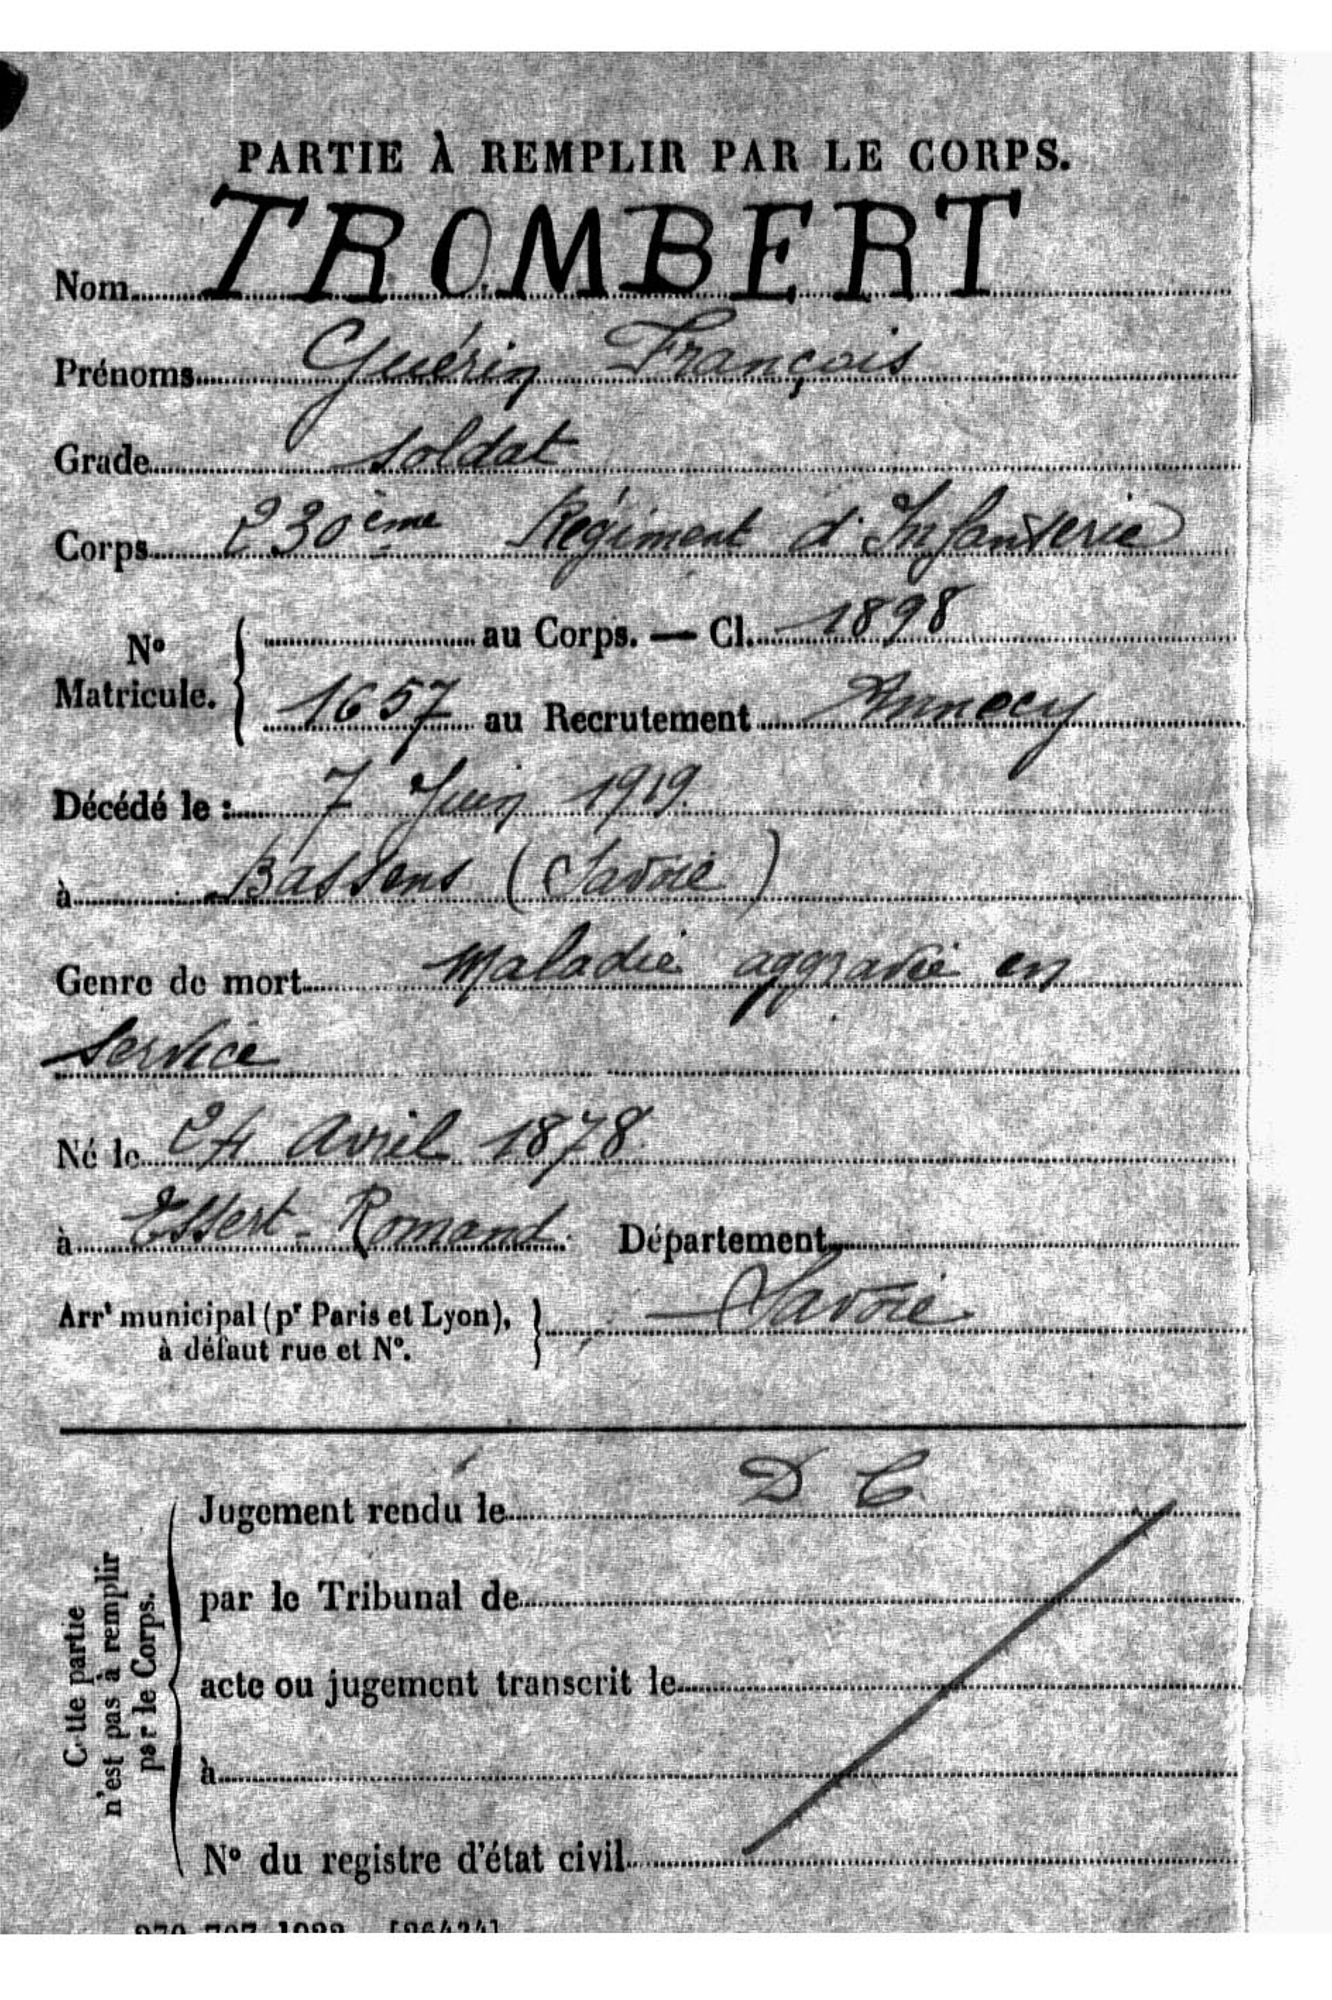 PARTIE À REMPLIR PAR LE CORPS.
Nom TROMBERT
Prénoms Guérin François
Grade soldat
Corps 230ème Régiment d'Infanterie
No Matricule. { au Corps. — Cl. 1898
1657 au Recrutement Annecy
Décédé le : 7 Juin 1919.
à Bassens (Savoie)
Genre de mort Maladie aggravée en
service
Né le 24 Avril 1878.
à Essert-Romand. Département
Arrt municipal (pr Paris et Lyon), } Savoie
à défaut rue et No.
Cette partie
n'est pas à remplir
par le Corps.
Jugement rendu le D C.
par le Tribunal de
acte ou jugement transcrit le
à
No du registre d'état civil